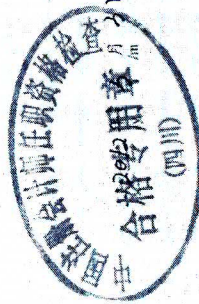 中国注册会计师任职资格检查
合格专用章
2012
(四川)
月